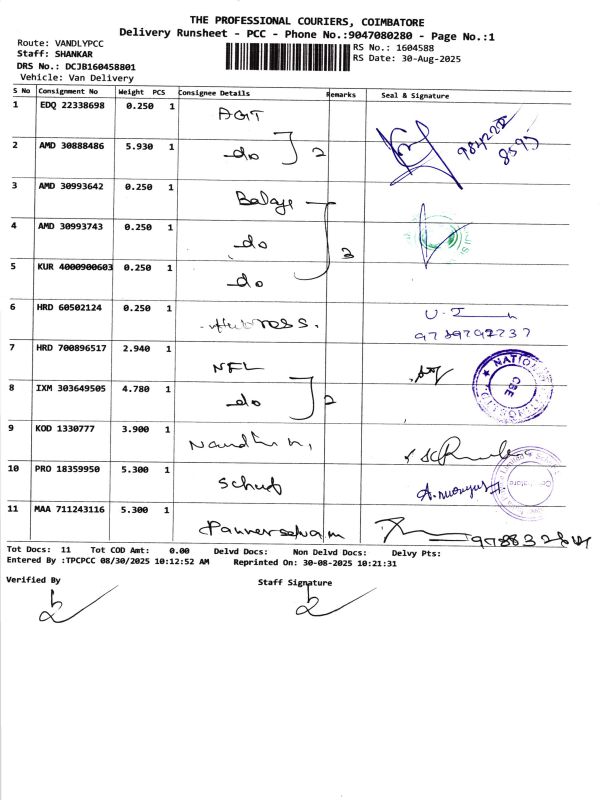 THE PROFESSIONAL COURIERS, COIMBATORE
Delivery Runsheet - PCC - Phone No.:9047080280 - Page No.:1
Route: VANDLYPCC
Staff: SHANKAR
DRS No.: DCJB160458801
Vehicle: Van Delivery
RS No.: 1604588
RS Date: 30-Aug-2025
S No Consignment No Weight PCS Consignee Details Remarks Seal & Signature
1 EDQ 22338698 0.250 1
2 AMD 30888486 5.930 1 do 2
3 AMD 30993642 0.250 1 Balaje
4 AMD 30993743 0.250 1 do 3
5 KUR 4000900603 0.250 1 do
6 HRD 60502124 0.250 1
9789792737
7 HRD 700896517 2.940 1 NFL NATIONAL CBE
8 IXM 303649505 4.780 1 do 2
9 KOD 1330777 3.900 1
10 PRO 18359950 5.300 1
11 MAA 711243116 5.300 1 Panneerselvam
Tot Docs: 11 Tot COD Amt: 0.00 Delvd Docs: Non Delvd Docs: Delvy Pts:
Entered By :TPCPCC 08/30/2025 10:12:52 AM Reprinted On: 30-08-2025 10:21:31
Verified By Staff Signature